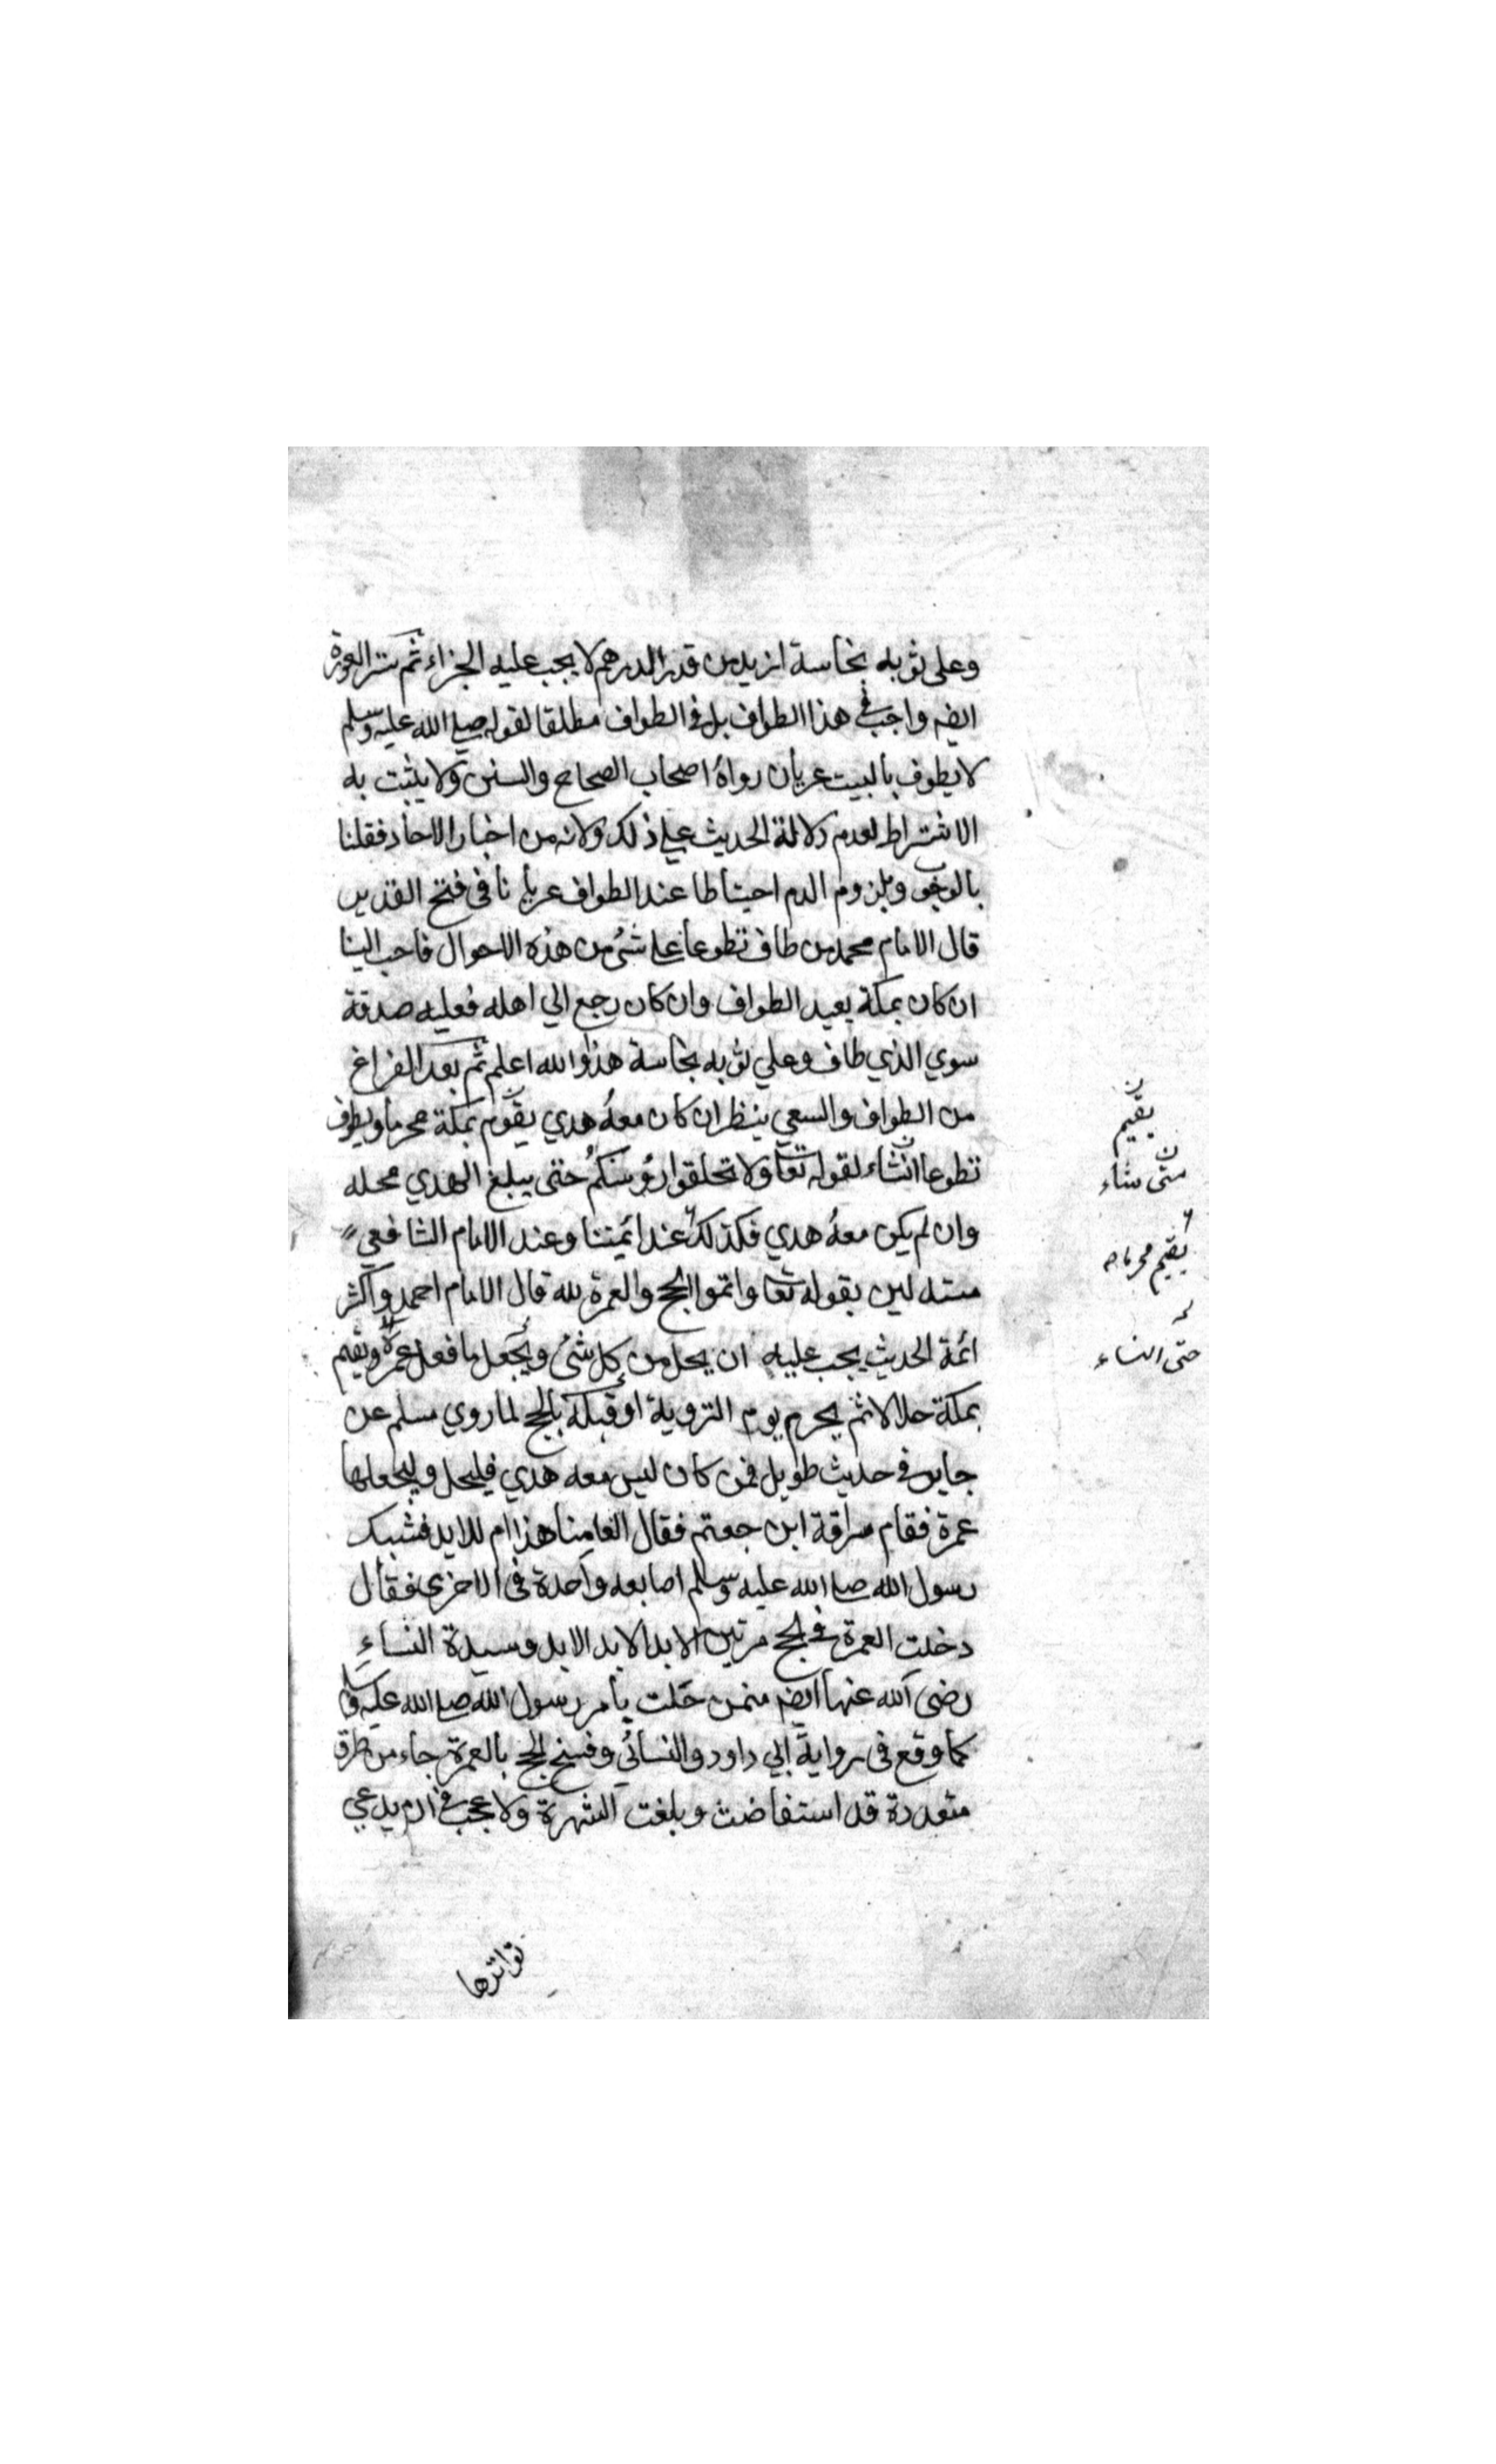 وعلى ثوبه نجاسة ازيد من قدر الدرهم لا يجب عليه الجزاء ثم ستر العورة
ايضه واجب في هذا الطواف بل في الطواف مطلقا لقوله صلى الله عليه وسلم
لا يطوف بالبيت عريان رواه اصحاب الصحاح والسنن ولا يثبت به
الاشتراط لعدم دلالة الحديث على ذلك ولانه من اخبار الاحاد فقلنا
بالوجوب وبلزوم الدم احتياطا عند الطواف عريانا في فتح القدير
قال الامام محمد من طاف تطوعا على شئ من هذه الاحوال فاحب الينا
ان كان بمكة يعيد الطواف وان كان رجع الي اهله فعليه صدقة
سوي الذي طاف وعلي ثوبه نجاسة هذا والله اعلم ثم بعد الفراغ
من الطواف والسعي ينظر ان كان معه هدي يقوم بمكة محرما ويطوف
تطوعا انشاء لقوله تعا ولا تحلقوا رؤسكم حتى يبلغ الهدي محله
وان لم يكن معه هدي فكذلك عند ائمتنا وعند الامام الشافعي
مستدلين بقوله تعا واتموا الحج والعمرة لله قال الامام احمد واكثر
ائمة الحديث يجب عليه ان يحل من كل شئ ويجعل ما فعل عمرة ويقيم
بمكة حلالا ثم يحرم يوم التروية او قبله بالحج لما روي مسلم عن
جابر في حديث طويل فمن كان ليس معه هدي فليحل وليجعلها
عمرة فقام سراقة ابن جعتم فقال العامنا هذا ام للابد فشبك
رسول الله صلى الله عليه وسلم اصابعه واحدة في الاخرى فقال
دخلت العمرة في الحج مرتين الابد الابد الابد وسيدة النساء
رضى الله عنها ايضه ممن حلت بامر رسول الله صلى الله عليه وسلم
كما وقع في رواية ابي داود والنسائي وفسخ الحج بالعمرة جاء من طرق
متعددة قد استفاضت وبلغت الشهرة ولا عجب في ان يدعي
تواترها
ن
يقيم
ن
متى شاء
يقيم محرما
حتى النساء